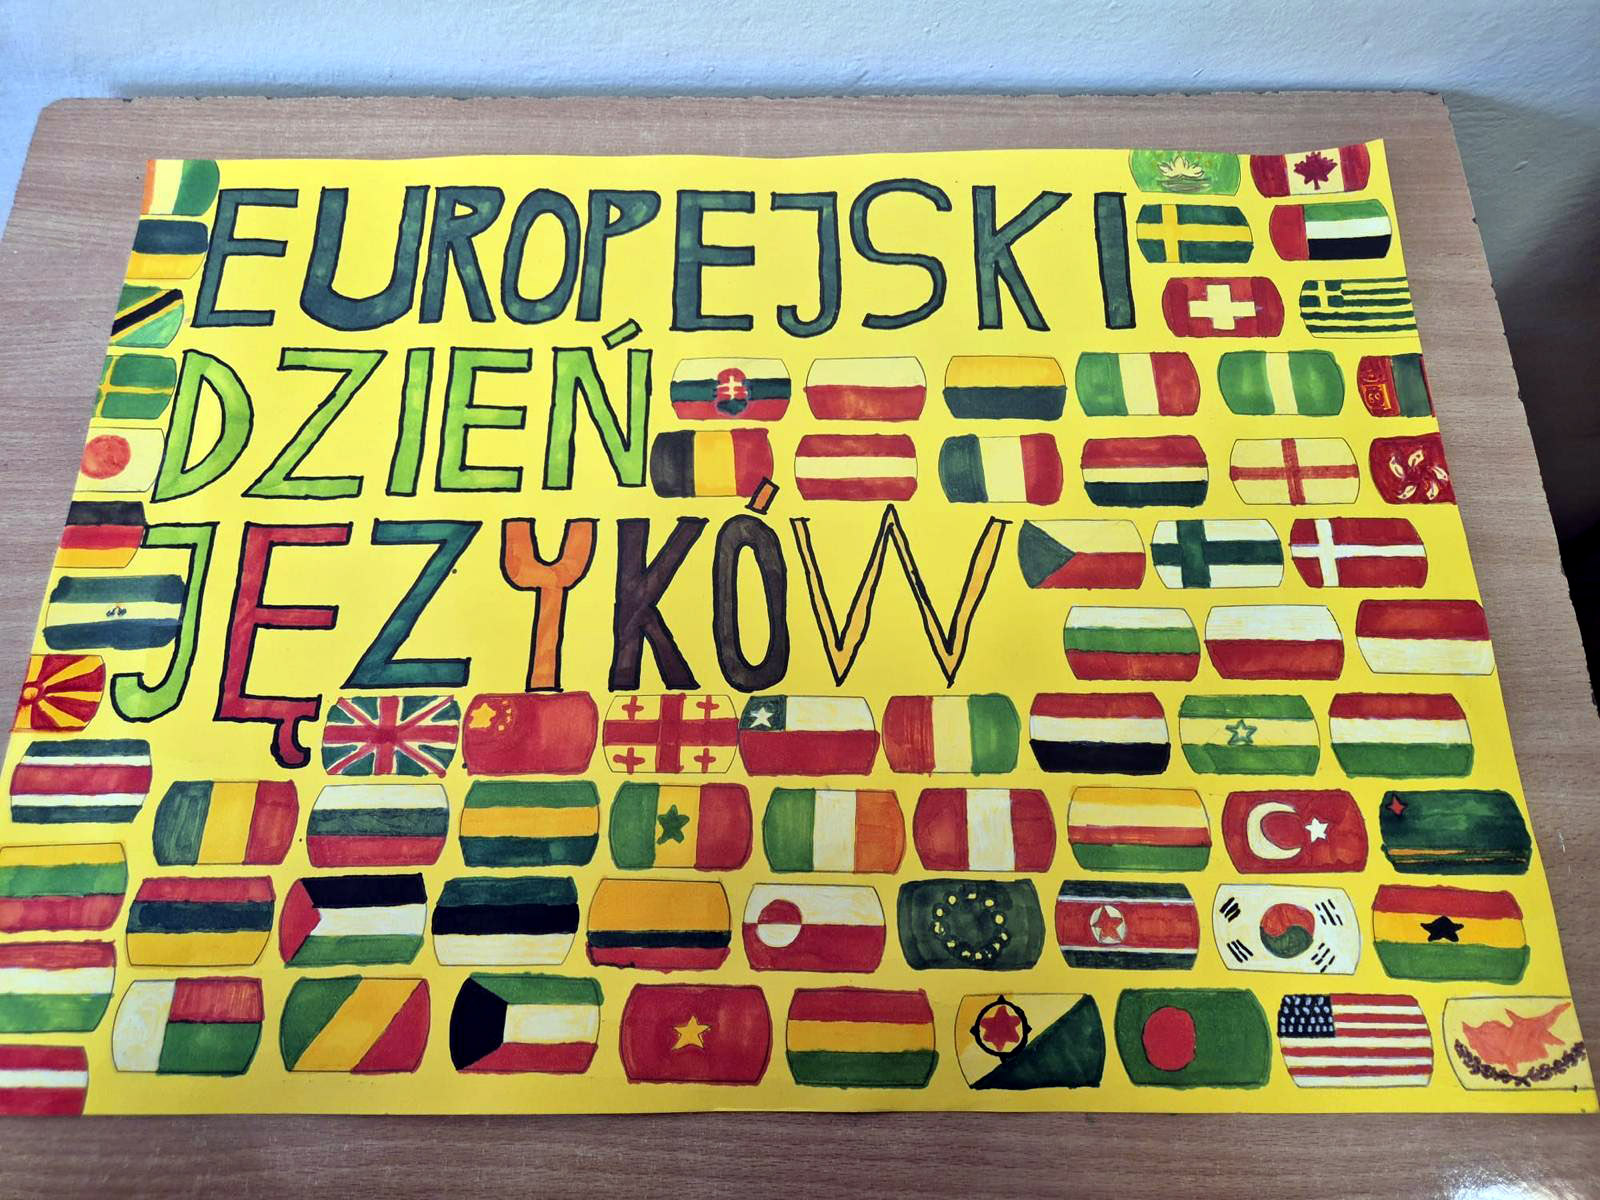 EUROPEJSKI
DZIEŃ
JĘZYKÓW